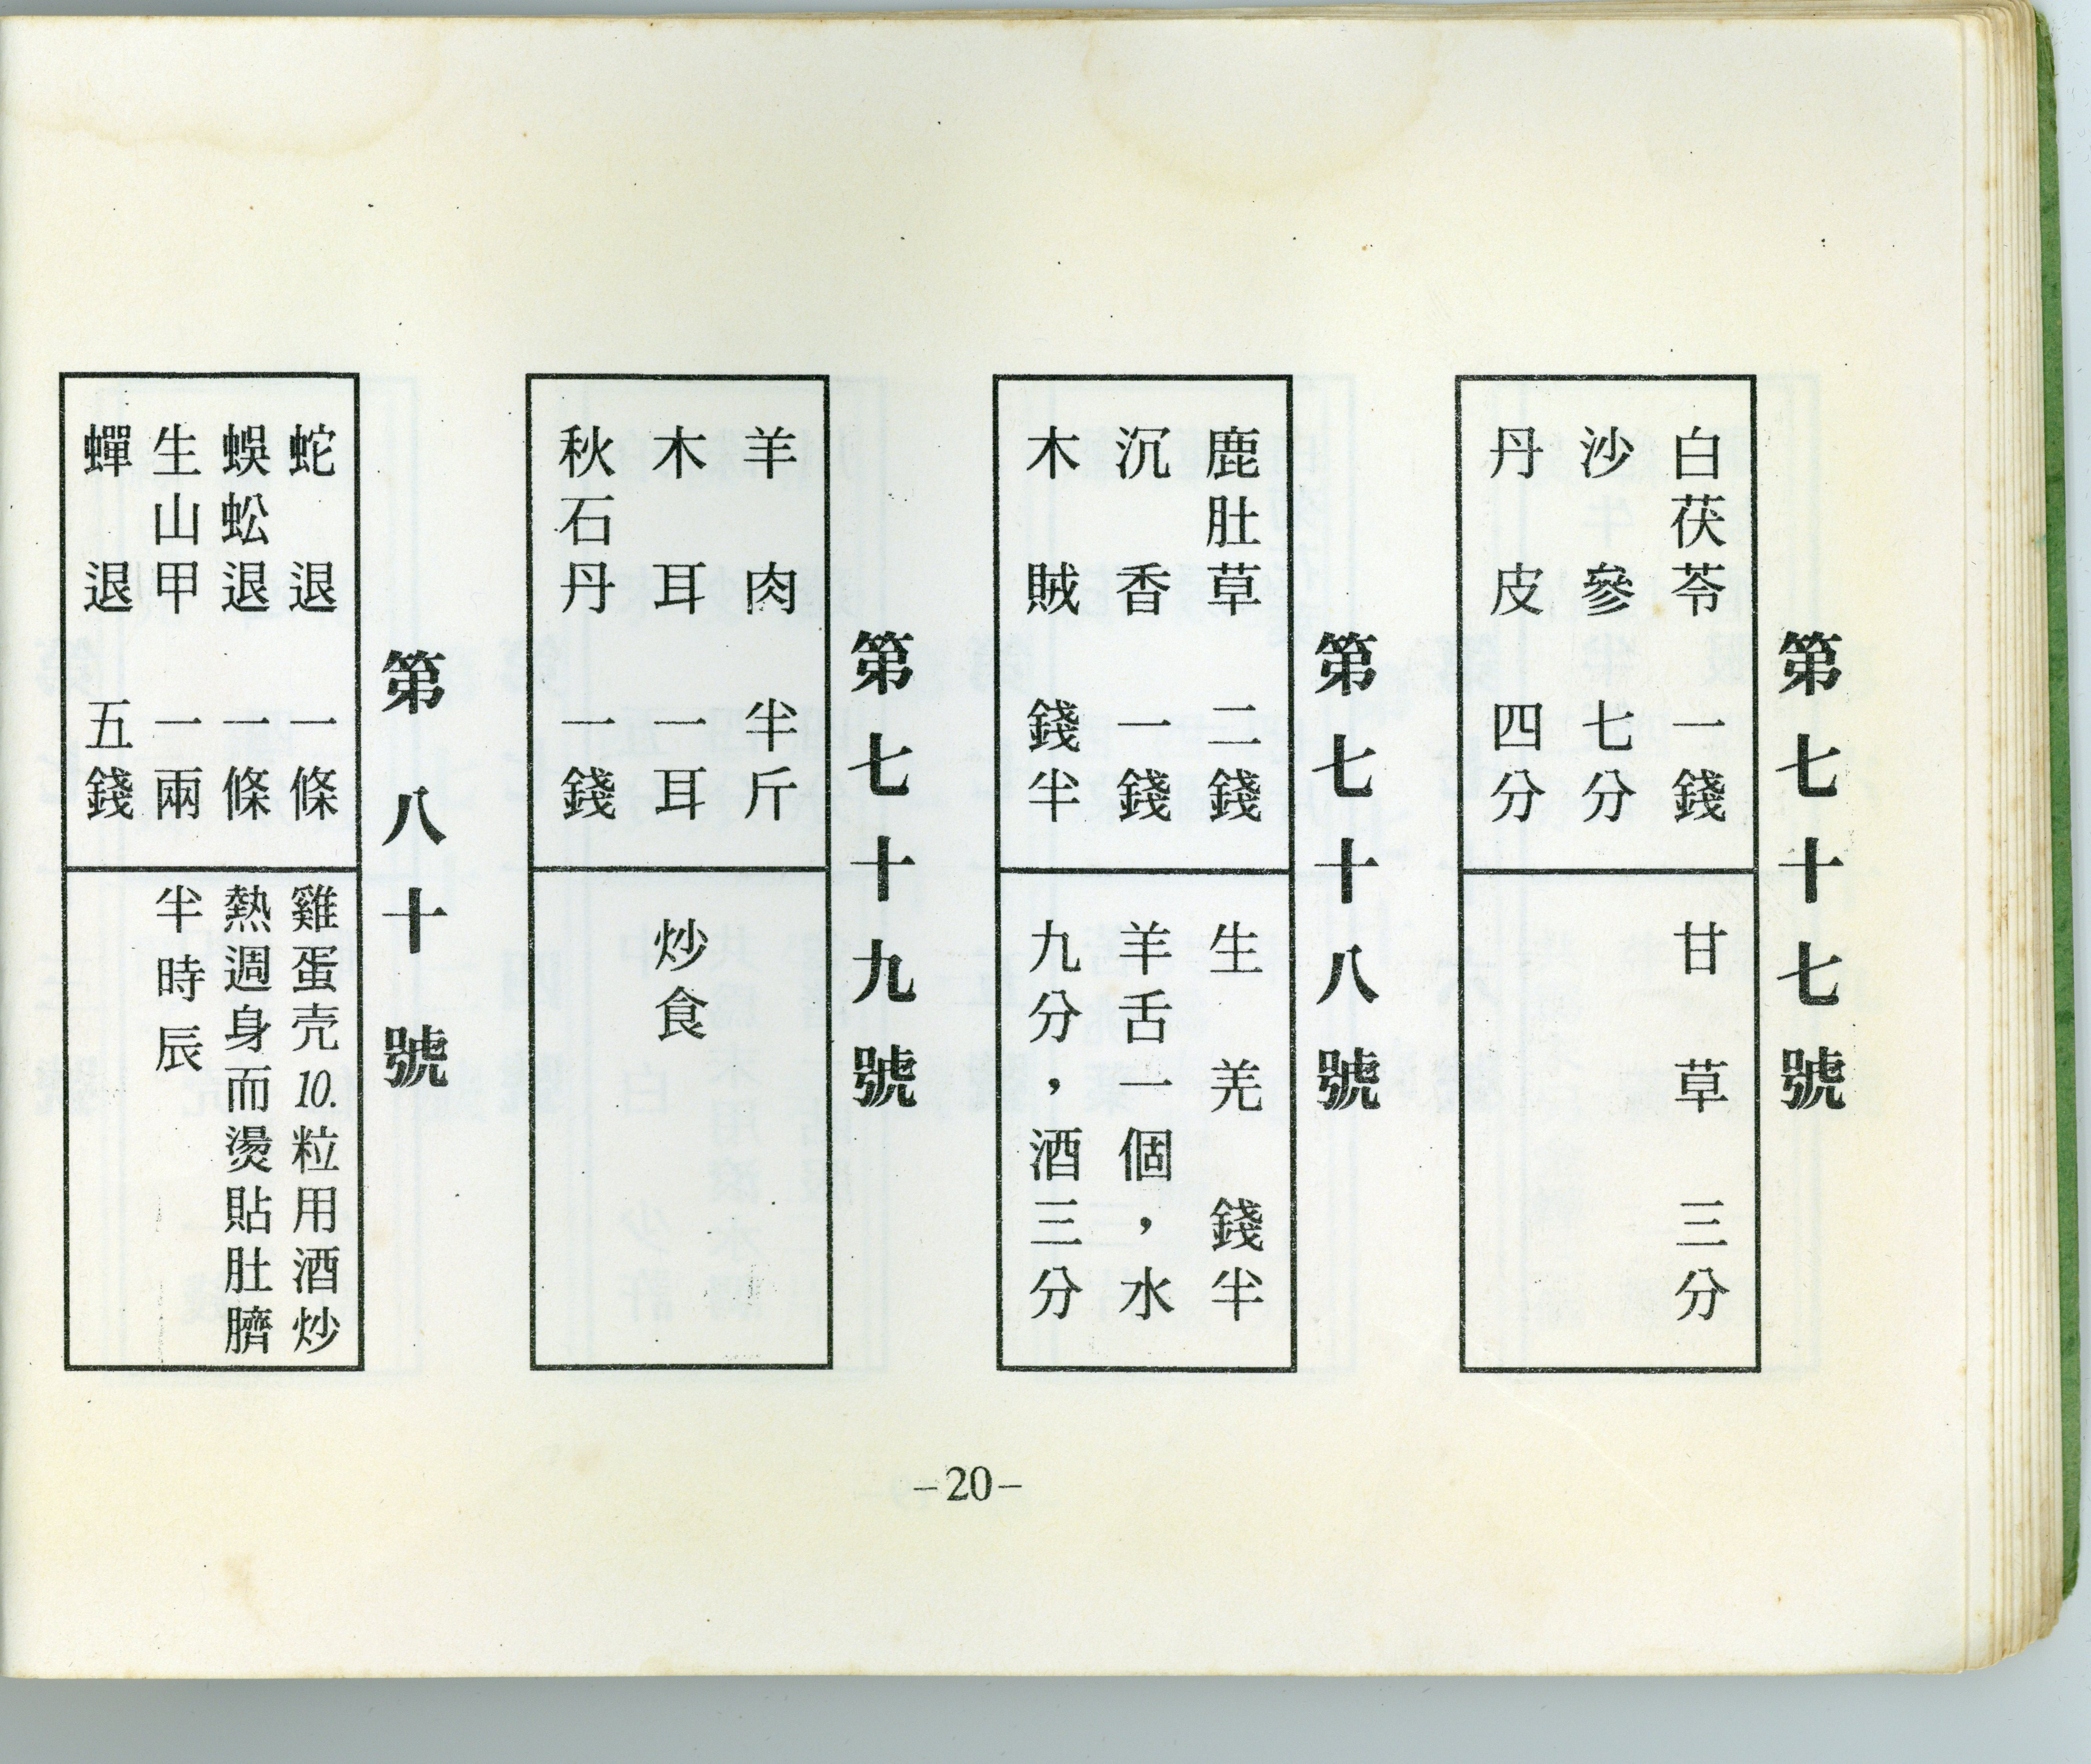 第七十七號
白茯苓 一錢
沙參 七分
丹皮 四分
甘草 三分
第七十八號
鹿肚草 二錢
沉香 一錢
木賊 錢半
生羌 錢半
羊舌一個，水
九分，酒三分
第七十九號
羊肉 半斤
木耳 一耳
秋石丹 一錢
炒食
第八十號
蛇退 一條
蜈蚣退 一條
生山甲 一兩
蟬退 五錢
雞蛋壳10.粒用酒炒
熱週身而燙貼肚臍
半時辰
-20-